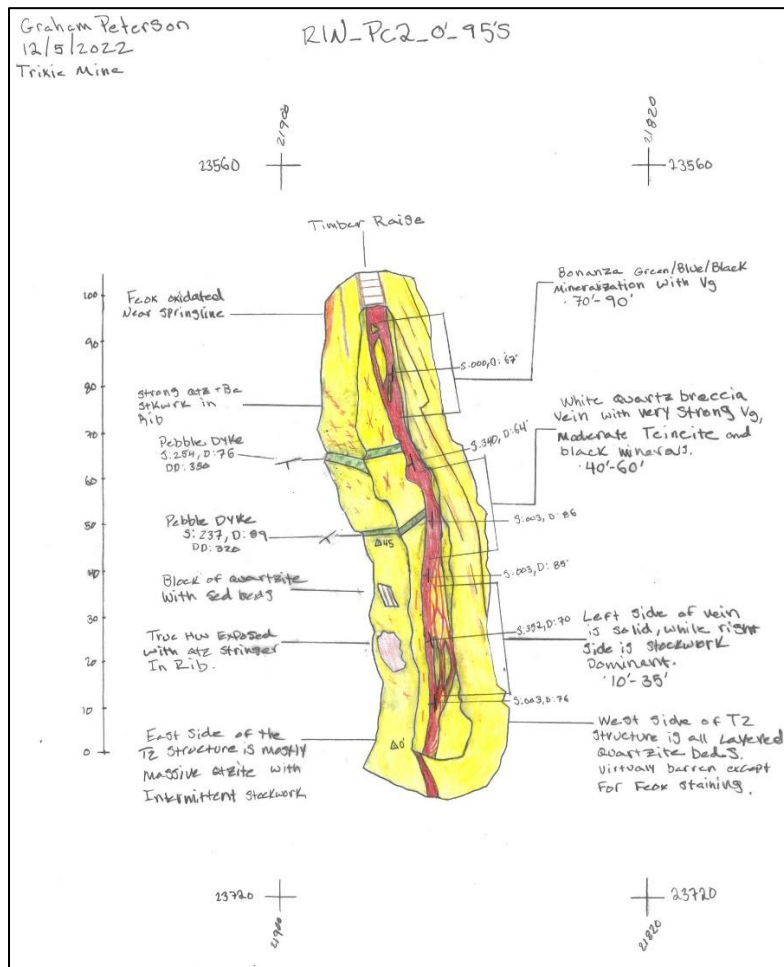 Graham Peterson
12/5/2022
Trixie Mine
RIN_PC2_0'_95'S
21900
21820
23560
23560
Timber Raise
100
90
80
70
60
50
40
30
20
10
0
Feox oxidated
Near Springline
Strong qtz + Ba
Stkwrk in
Rib
Pebble Dyke
S:254, D:76
DD:350
Pebble Dyke
S:237, D:89
DD:320
Block of Quartzite
With Sed beds
True HW Exposed
with qtz stringer
In Rib.
East Side of the
T2 Structure is mostly
Massive qtzite with
Intermittent Stockwork
Δ45
Δ0'
S:000, D:67'
S:340, D:64'
S:003, D:86
S:003, D:85'
S:352, D:70
S:003, D:76
Bonanza Green/Blue/Black
Mineralization with Vg
·70'-90'
White Quartz breccia
Vein with very Strong Vg,
Moderate Teineite and
black minerals.
·40'-60'
Left Side of vein
is solid, while right
Side is Stockwork
Dominant.
·10'-35'
West Side of T2
Structure is all Layered
Quartzite beds.
Virtually barren except
For Feox Staining.
23720
23720
21900
21820